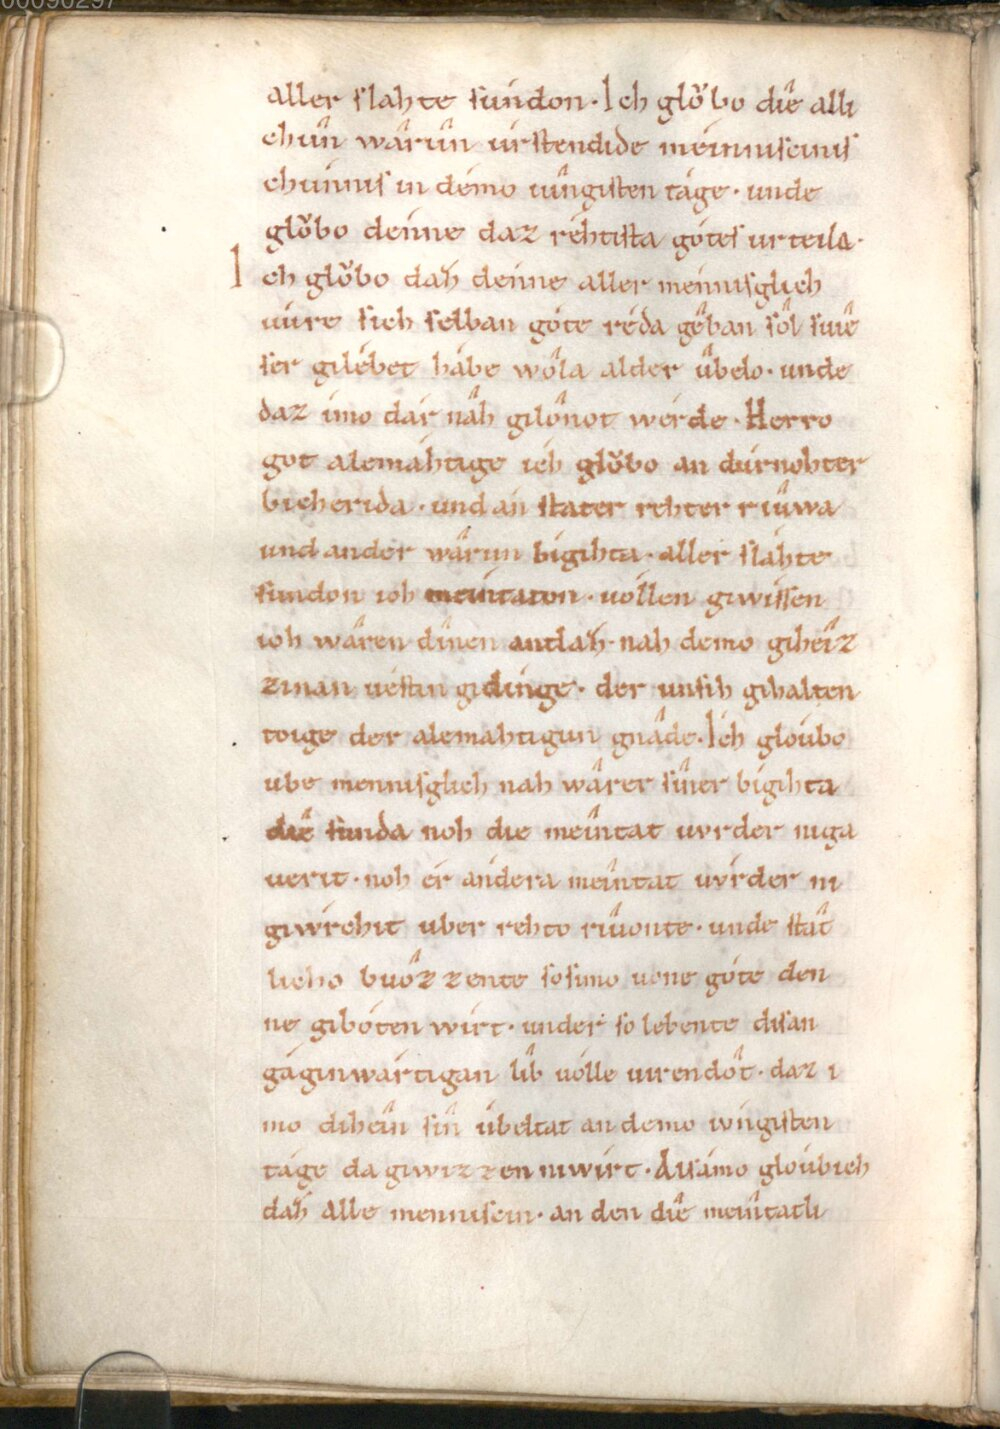 00090297
aller slahte sundon · Ich glǒbo die alli
chûn wârûn úrstendide ménniscinis
chunnis in démo iûngisten táge · unde
glǒbo denne daz réhtista gótes urteila ·
Ich glǒbo dáh denne aller mennisglich
uúre sich selban góte réda gében sôl suîe
ser gilébet hábe wóla alder ûbelo · unde
daz imo dár nâh gilônot wérde · Herro
got alemáhtige ich glǒbo an dúrnohter
bicherida · und án stater rehter riûwa
und ander wârun bigihta · aller sláhte
sundon ioh meintaton · uóllen giwissen
ioh wâren dînen antláh · nah demo gihêiz
zinan uéstin gidinge · der unsih gihalten
toige der alemahtigun gnâde · Ich gloúbo
ube mennisglich nah wârer sîner bigihta
dîe sunda noh die meîntat uvrder niga
uerit · noh ér ándera meîntat uvŕder ni
giwŕchit uber rehto riûonte · unde stât
licho buôzzente sosimo uone góte den
ne gibóten wírt · under so lebente disan
gáginwártigan lîb uólle uirendôt · daz i
mo dihêin sîn úbeltat an demo iúngisten
táge da giwizzen niwirt · Disámo gloúbich
dáh alle menniscin · an den dîe meîntatli